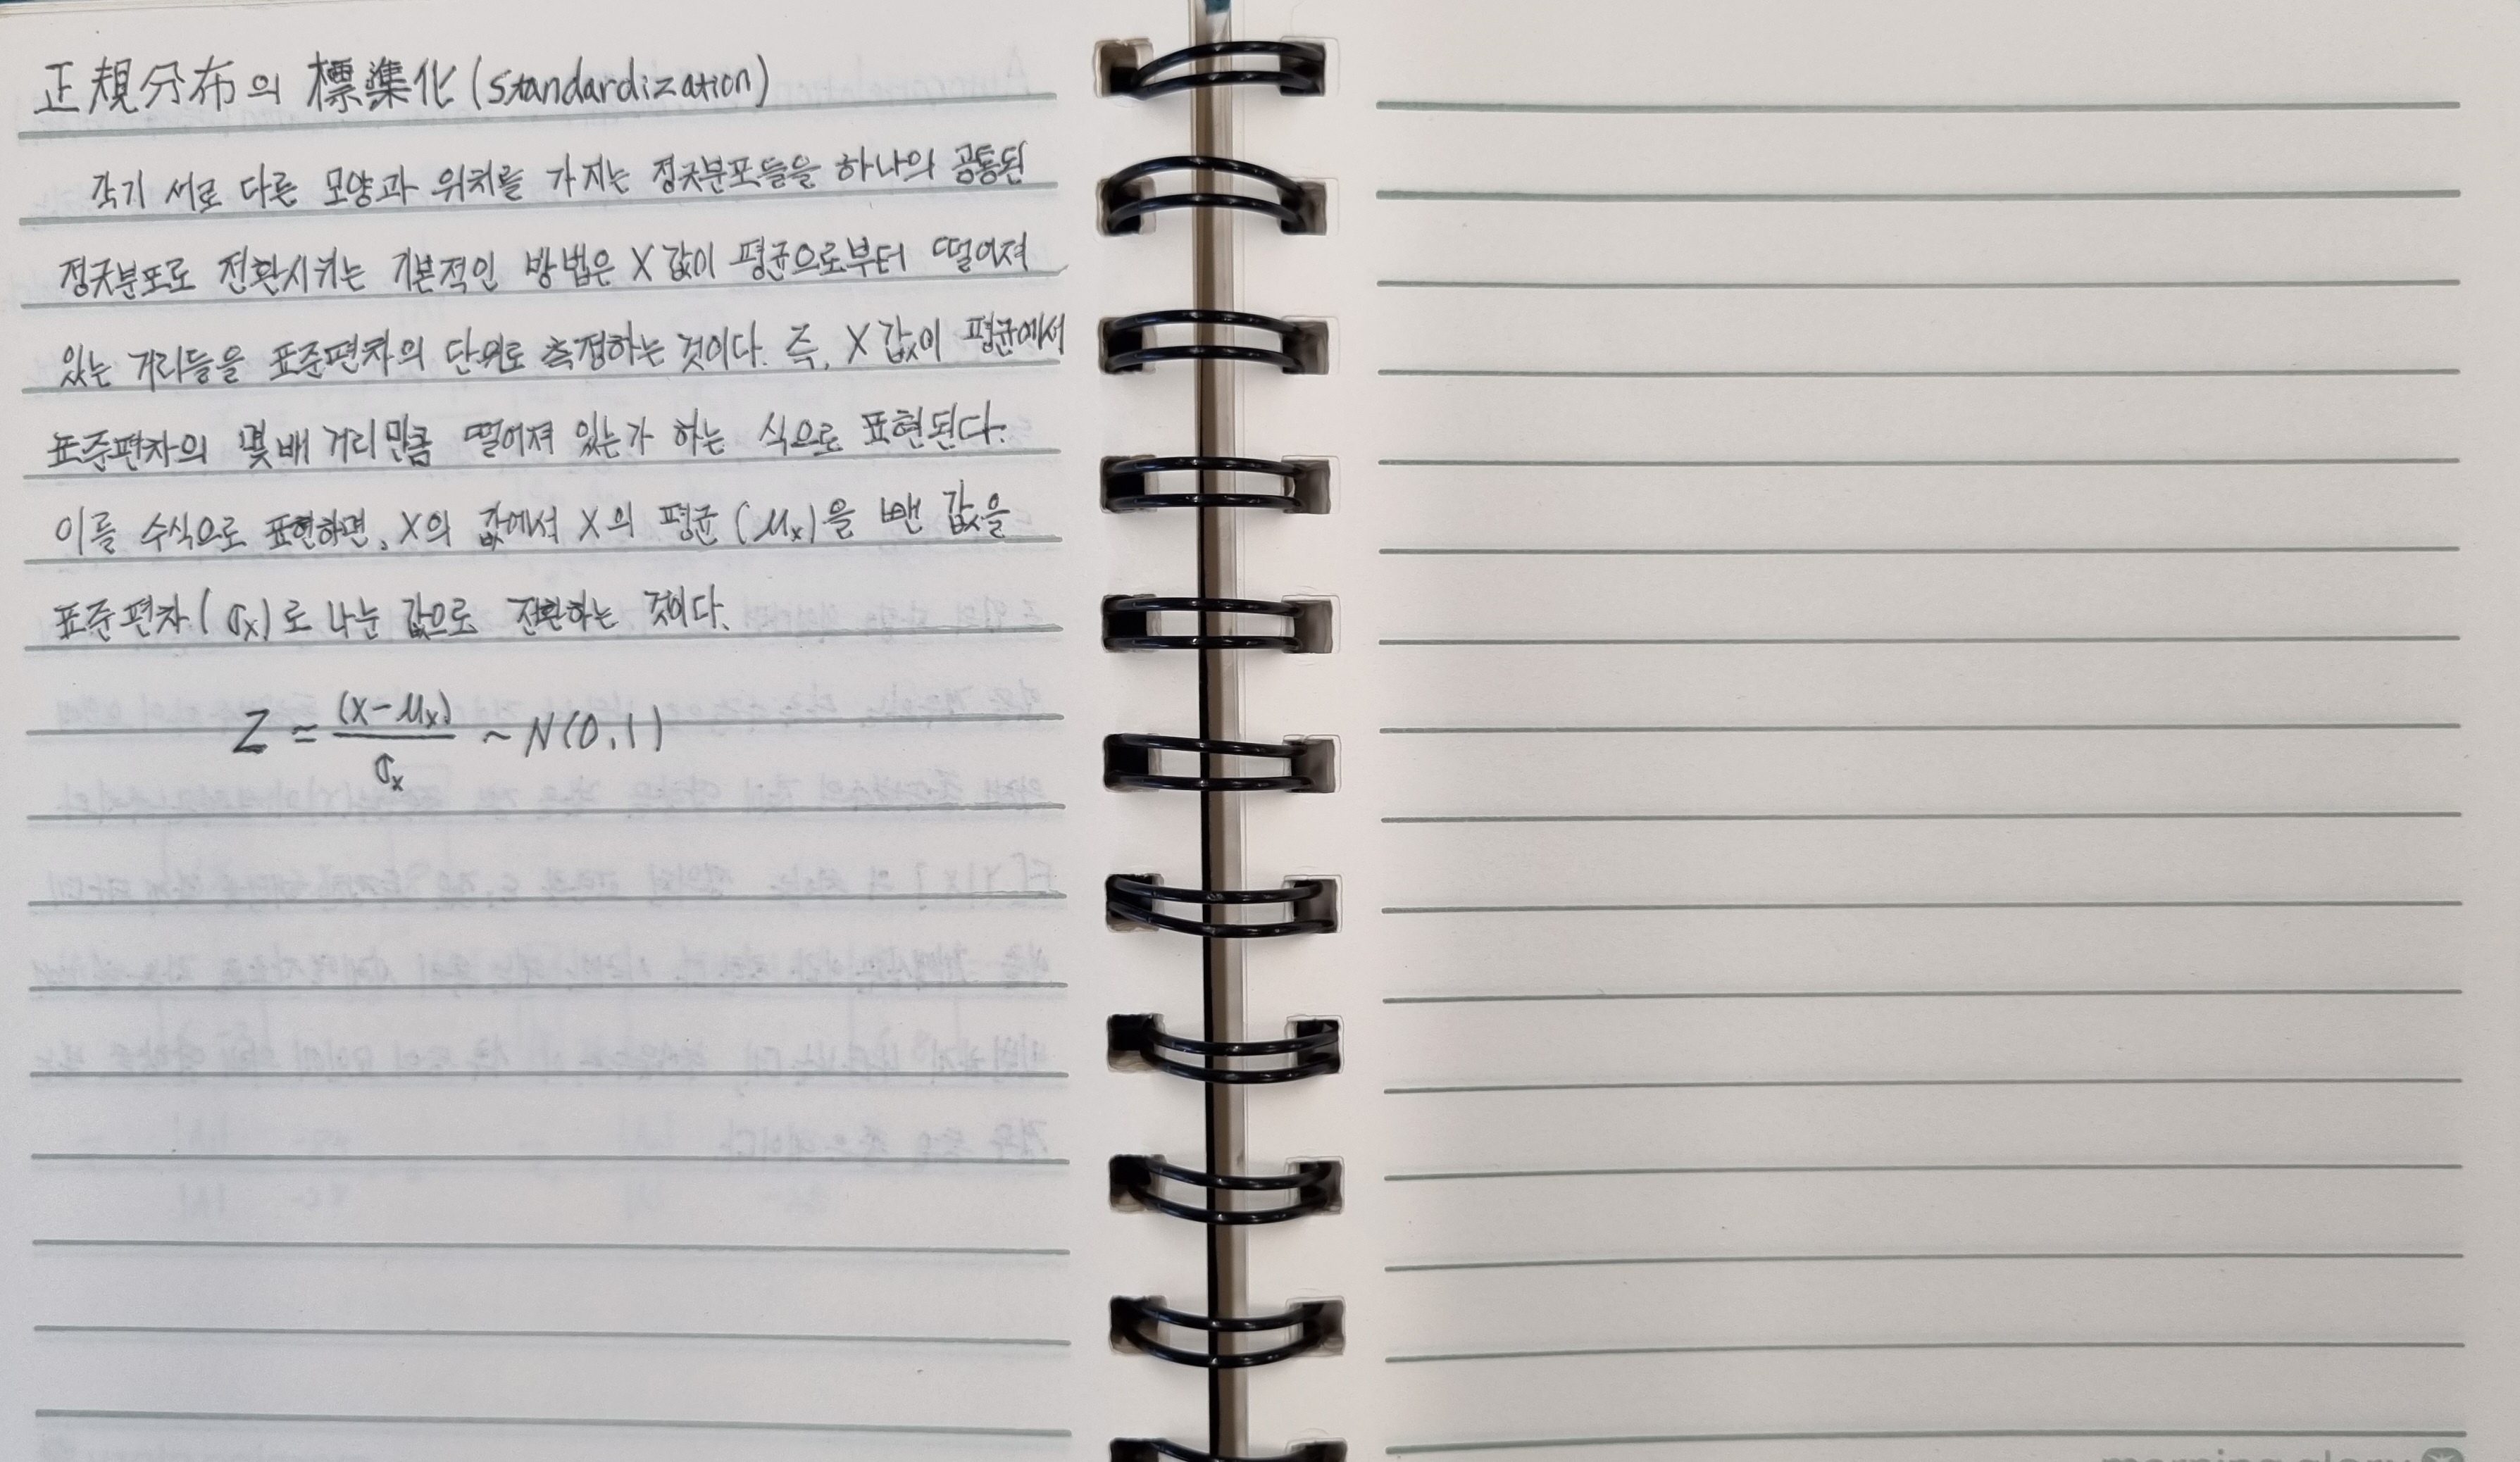 正規分布의 標準化 (standardization)
각기 서로 다른 모양과 위치를 가지는 정규분포들을 하나의 공통된
정규분포로 전환시키는 기본적인 방법은 X 값이 평균으로부터 떨어져
있는 거리들을 표준편차의 단위로 측정하는 것이다. 즉, X 값이 평균에서
표준편차의 몇 배 거리만큼 떨어져 있는가 하는 식으로 표현된다.
이를 수식으로 표현하면, X의 값에서 X의 평균 (μx)을 뺀 값을
표준편차(σx)로 나눈 값으로 전환하는 것이다.
Z = (x-μx) / σx ~ N(0,1)
morning glory